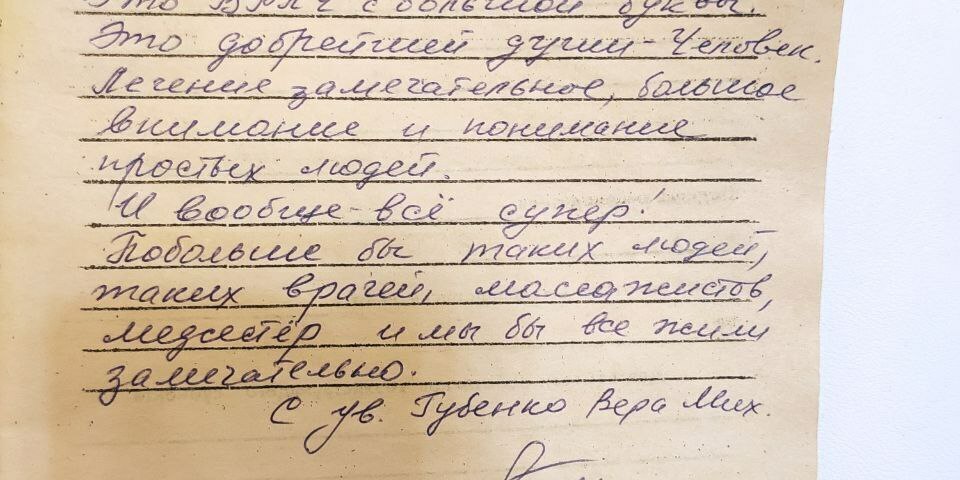 Это ВРАЧ с большой буквы.
Это добрейшей души - Человек.
Лечение замечательное, большое
внимание и понимание
простых людей.
И вообще - всё супер!
Побольше бы таких людей,
таких врачей, массажистов,
медсестёр и мы бы все жили
замечательно.
С ув. Губенко Вера Мих.